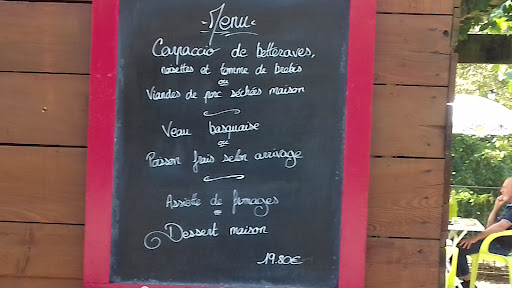 Menu
Carpaccio de betteraves,
noisettes et tomme de brebis
ou
Viandes de porc séchées maison
Veau basquaise
ou
Poisson frais selon arrivage
Assiette de fromages
ou
Dessert maison
19.80€